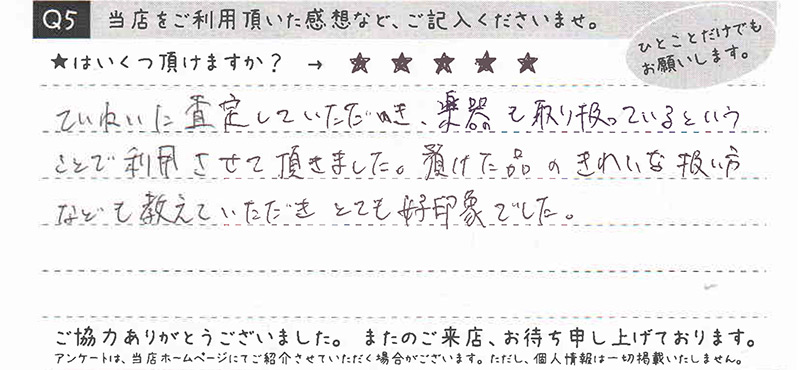 Q5 当店をご利用頂いた感想など、ご記入くださいませ。
ひとことだけでも
お願いします。
★はいくつ頂けますか？ → ★ ★ ★ ★ ★
ていねいに査定していただき、楽器も取り扱っているという
ことで利用させて頂きました。預けた品のきれいな扱い方
なども教えていただきとても好印象でした。
ご協力ありがとうございました。 またのご来店、お待ち申し上げております。
アンケートは、当店ホームページにてご紹介させていただく場合がございます。ただし、個人情報は一切掲載いたしません。